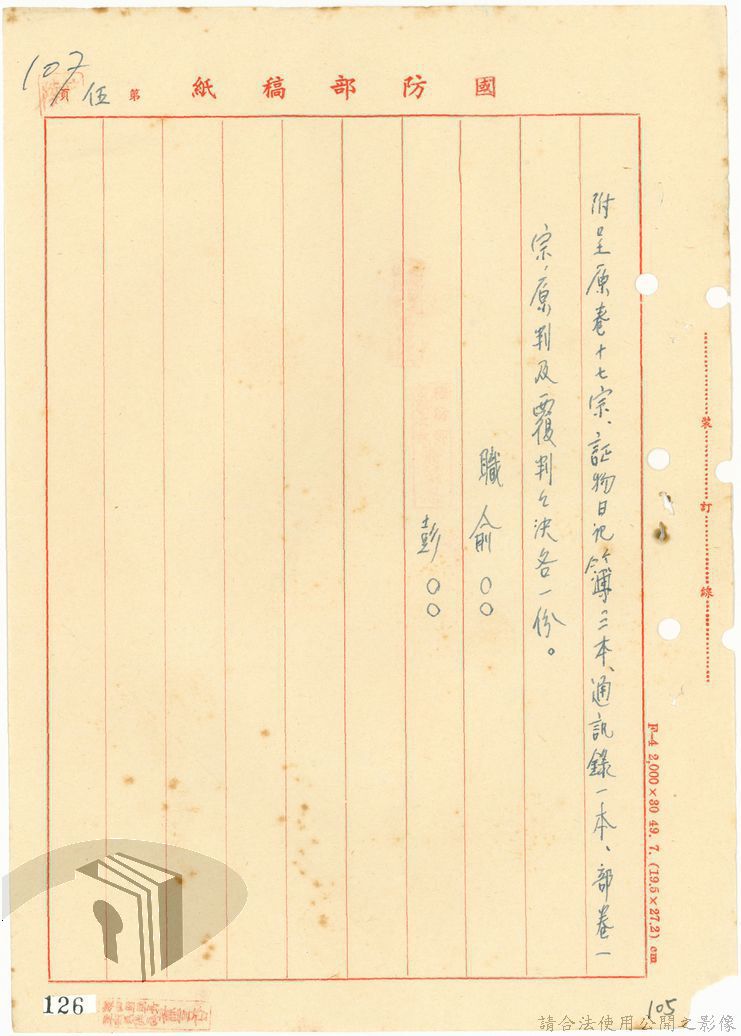 國防部稿紙
第伍頁
107
附呈原卷十七宗、証物日记簿三本、通訊錄一本、部卷一
宗、原判及覆判之決各一份。
職俞○○
彭○○
裝訂線
F—4 2,000×30 49. 7. (19.5×27.2) cm
126
105
請合法使用公開之影像